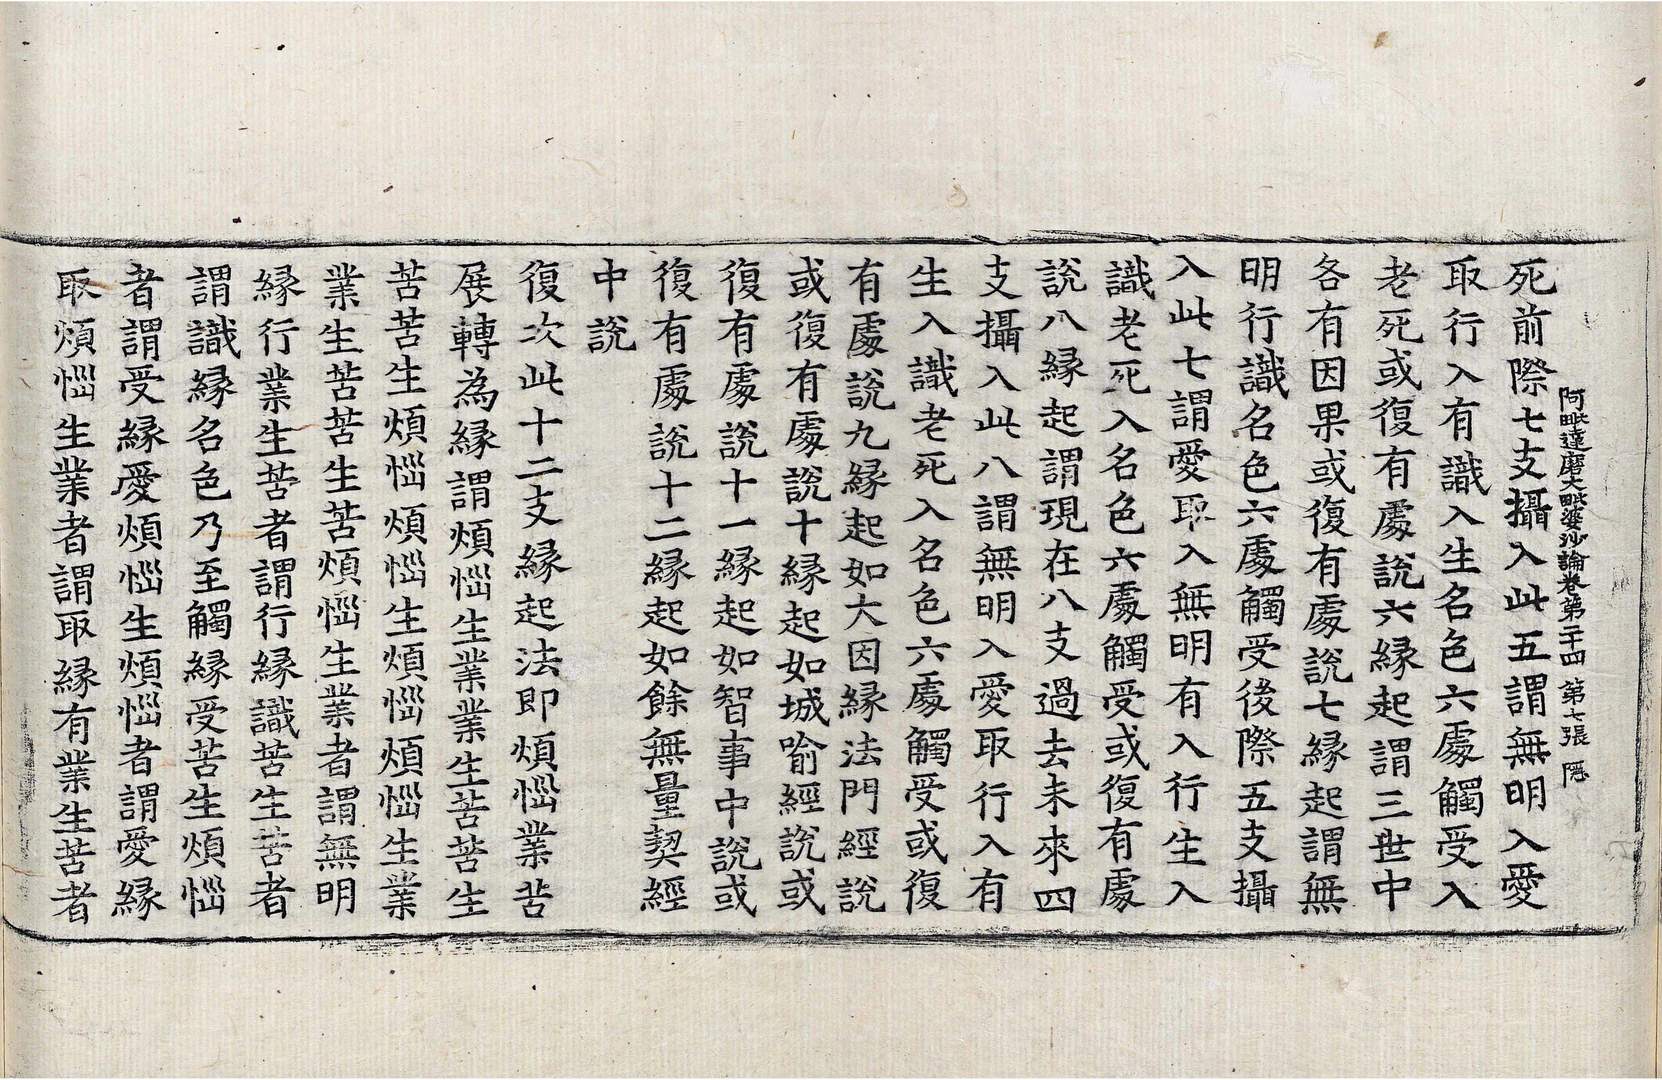 阿毗達磨大毗婆沙論卷第二十四 第七張 隱
死前際七支攝入此五謂無明入愛
取行入有識入生名色六處觸受入
老死或復有處說六緣起謂三世中
各有因果或復有處說七緣起謂無
明行識名色六處觸受後際五支攝
入此七謂愛取入無明有入行生入
識老死入名色六處觸受或復有處
說八緣起謂現在八支過去未來四
支攝入此八謂無明入愛取行入有
生入識老死入名色六處觸受或復
有處說九緣起如大因緣法門經說
或復有處說十緣起如城喻經說或
復有處說十一緣起如智事中說或
復有處說十二緣起如餘無量契經
中說
復次此十二支緣起法即煩惱業苦
展轉為緣謂煩惱生業業生苦苦生
苦苦生煩惱煩惱生煩惱煩惱生業
業生苦苦生苦煩惱生業者謂無明
緣行業生苦者謂行緣識苦生苦者
謂識緣名色乃至觸緣受苦生煩惱
者謂受緣愛煩惱生煩惱者謂愛緣
取煩惱生業者謂取緣有業生苦者